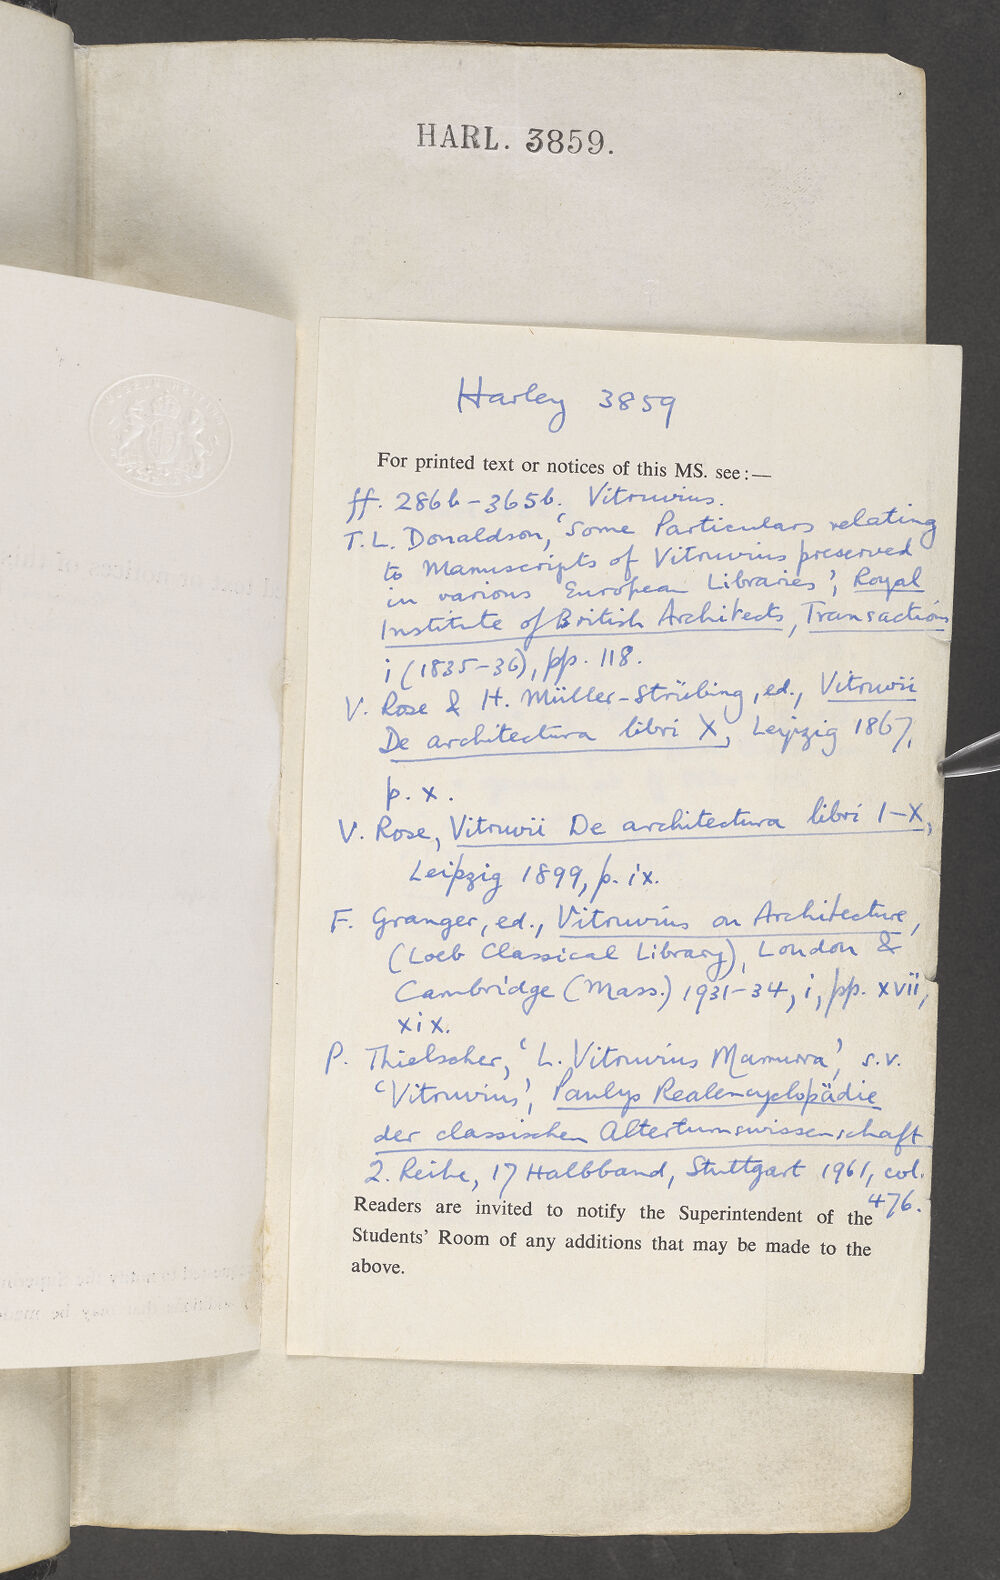 HARL. 3859.
Harley 3859
For printed text or notices of this MS. see:—
ff. 286b-365b. Vitruvius.
T.L. Donaldson, 'Some Particulars relating
to Manuscripts of Vitruvius preserved
in various European Libraries', Royal
Institute of British Architects, Transactions
i (1835-36), pp. 118.
V. Rose & H. Müller-Strübing, ed., Vitruvii
De architectura libri X, Leipzig 1867,
p. x.
V. Rose, Vitruvii De architectura libri I-X,
Leipzig 1899, p. ix.
F. Granger, ed., Vitruvius on Architecture,
(Loeb Classical Library), London &
Cambridge (Mass.) 1931-34, i, pp. xvii,
xix.
P. Thielscher, 'L. Vitruvius Mamurra', s.v.
'Vitruvius', Paulys Realencyclopädie
der classischen Altertumswissenschaft
2. Reihe, 17 Halbband, Stuttgart 1961, col.
476.
Readers are invited to notify the Superintendent of the
Students' Room of any additions that may be made to the
above.